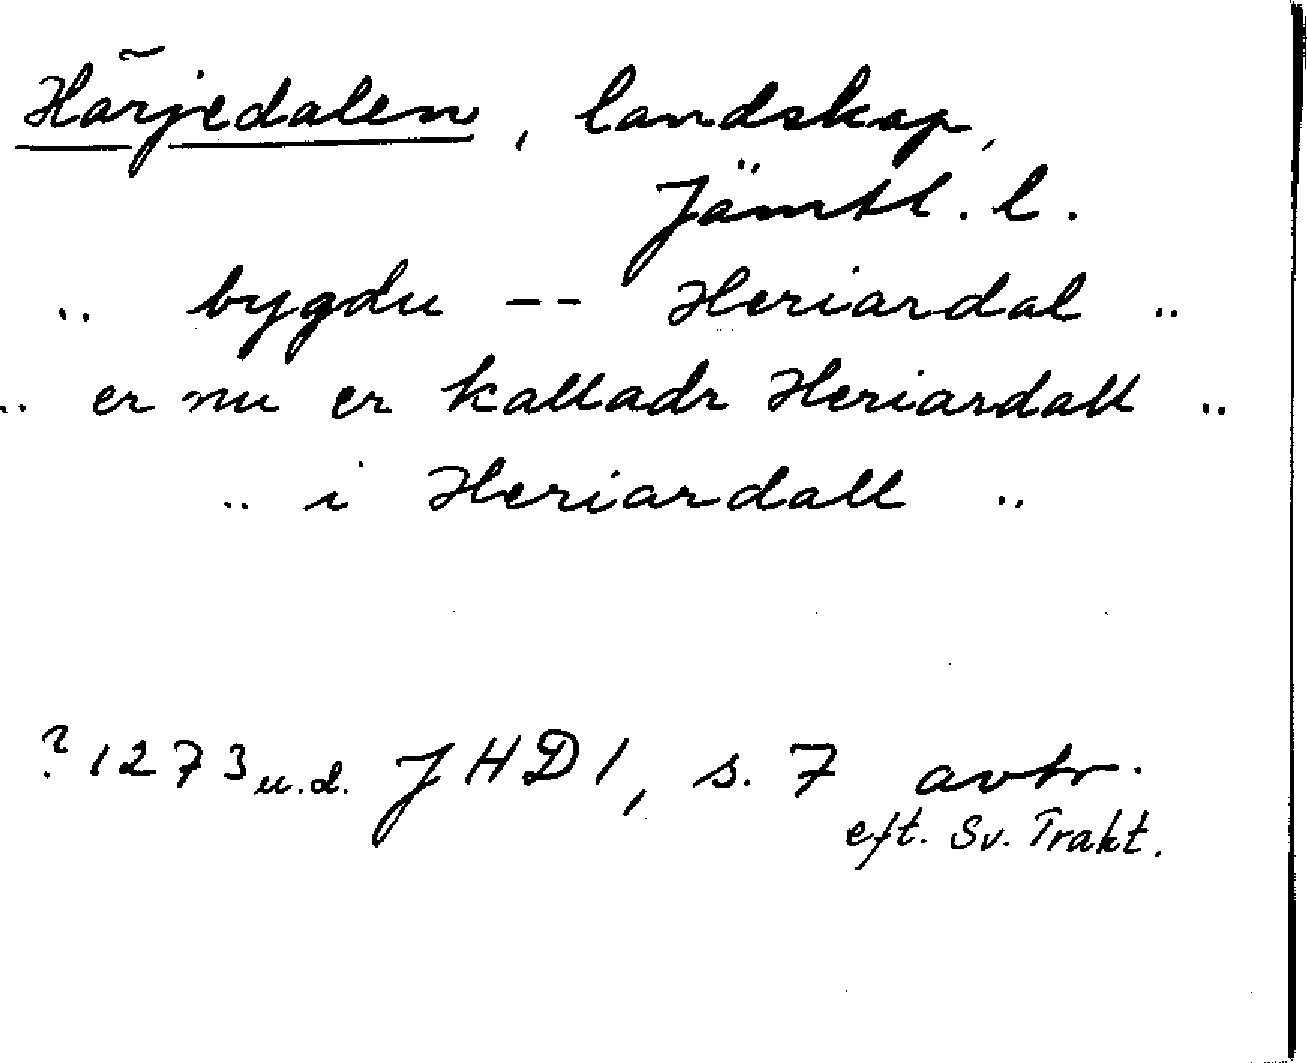 Härjedalen, landskap,
Jämtl. l.
.. bygdu -- Heriardal ..
.. er nu er kalladr Heriardall ..
.. i Heriardall ..
? 1273 u.d. JHD 1, s. 7 avtr.
eft. Sv. Trakt.